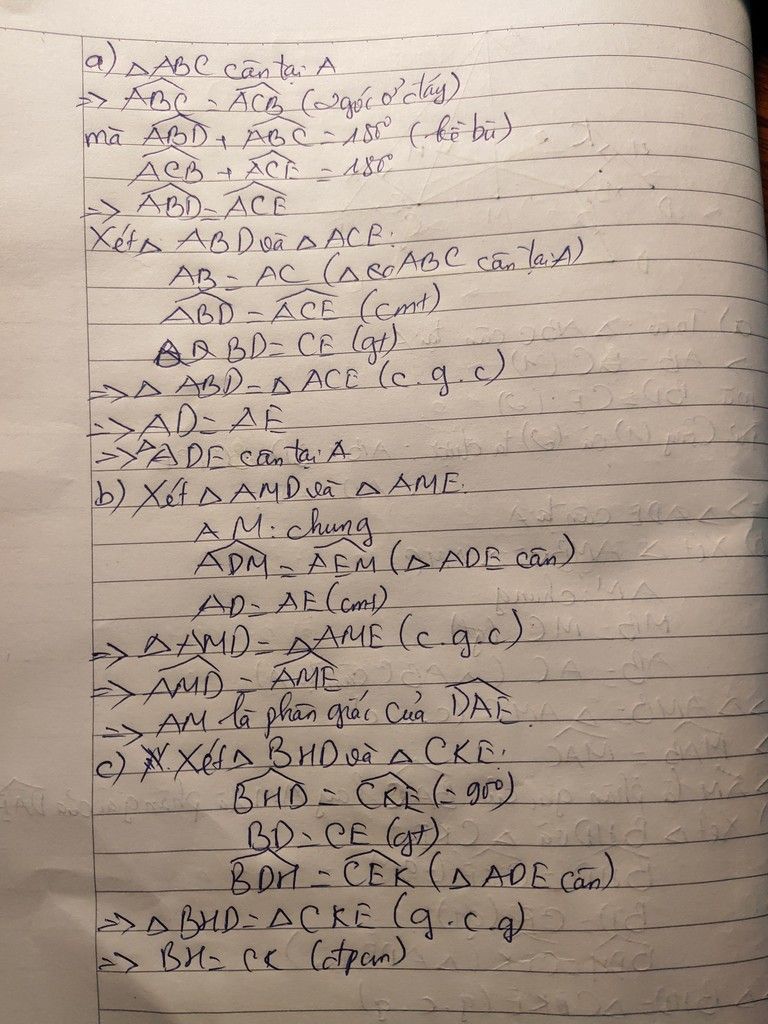 a) △ABC cân tại A
=> ABC = ACB (2 góc ở đáy)
mà ABD + ABC = 180° (kề bù)
ACB + ACE = 180°
=> ABD = ACE
Xét △ ABD và △ ACE:
AB = AC (△ ABC cân tại A)
ABD = ACE (cmt)
BD = CE (gt)
=> △ ABD = △ ACE (c.g.c)
=> AD = AE
=> △ADE cân tại A
b) Xét △ AMD và △ AME:
AM: chung
ADM = AEM (△ ADE cân)
AD = AE (cmt)
=> △AMD = △AME (c.g.c)
=> AMD = AME
=> AM là phân giác của DAE
c) Xét △ BHD và △ CKE:
BHD = CKE (= 90°)
BD = CE (gt)
BDH = CEK (△ ADE cân)
=> △BHD = △CKE (g.c.g)
=> BH = CK